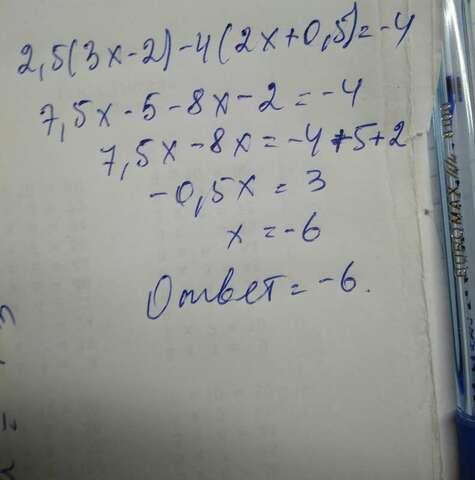 2,5(3x-2)-4(2x+0,5)=-4
7,5x-5-8x-2=-4
7,5x-8x=-4+5+2
-0,5x=3
x=-6
Ответ=-6.